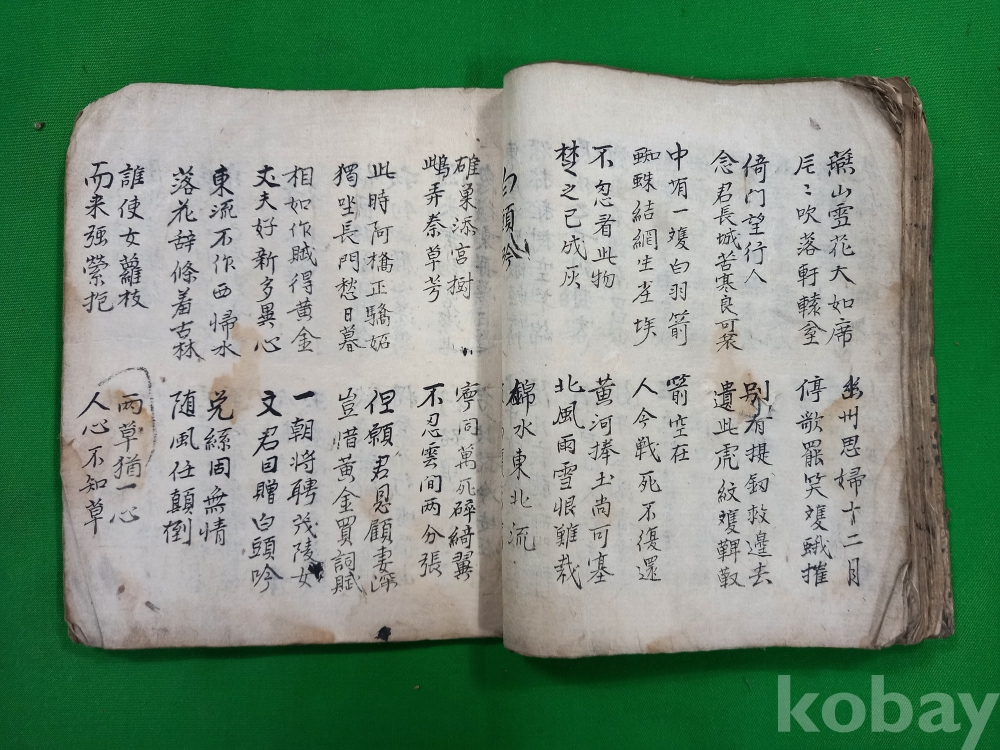 燕山雪花大如席
片〻吹落軒轅臺
幽州思婦十二月
停歌罷笑雙蛾摧
倚门望行人
念君長城苦寒良可哀
別有提釼救邊去
遺此虎紋雙鞞靫
中有一雙白羽箭
蜘蛛結網生塵埃
箭空在
人今戰死不復還
不忍看此物
焚之已成灰
黄河捧土尚可塞
北風雨雪恨難裁
白頭吟
錦水東北流
雄巢添宮樹
雌弄秦草芳
寧同萬死碎綺翼
不忍雲間两分張
此時阿嬌正驕妬
獨坐長門愁日暮
但願君恩顧妾深
豈惜黄金買詞賦
相如作賦得黄金
丈夫好新多異心
一朝將聘茂陵女
文君因贈白頭吟
東流不作西歸水
落花辞條羞古林
兔絲固無情
随風任顛倒
誰使女蘿枝
而来强縈抱
两草猶一心
人心不如草
kobay